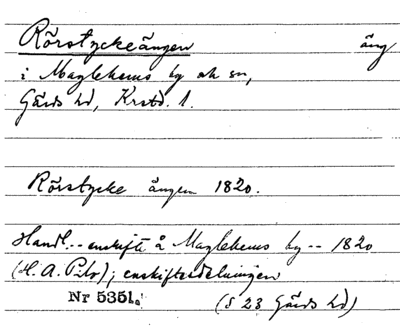 Rörstyckeängen äng
i Maglehems by och sn,
Gärds hd, Krstd. l.
Rörstycke ängen 1820.
Handl. -- enskifte å Maglehems by -- 1820
(H. A. Pilo); enskiftesdelningen
Nr 5351a (§ 23 Gärds hd)